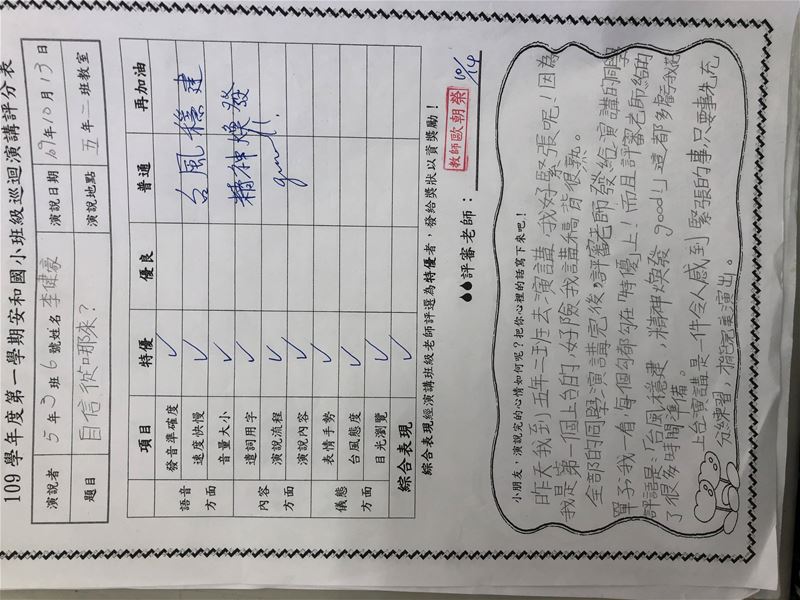 109學年度第一學期安和國小班級巡迴演講評分表
演說者 5年2班6號姓名李健豪 演說日期 109年10月13日
題目 自信從哪來? 演說地點 五年二班教室
項目 特優 優良 普通 再加油
語音方面 發音準確度 ✓
速度快慢 ✓
音量大小 ✓
內容方面 遣詞用字 ✓
演說流程 ✓
演說內容 ✓
儀態方面 表情手勢 ✓
台風態度 ✓
目光瀏覽 ✓
綜合表現 ✓
台風穩建
精神煥發
good!
綜合表現經演講班級老師評選為特優者,發給獎狀以資獎勵!
評審老師: 教師歐朝榮 10/14
小朋友,演說完的心情如何呢?把你心裡的話寫下來吧!
昨天我到五年二班去演講,我好緊張呢!因為
我是第一個上台的,好險我講稿背很熟。
全部的同學演講完後,評審老師發給演講的同學
單子,我一看,每個勾都勾在「特優」上!而且評審老師給的
評語是:「台風穩建,精神煥發good!」這都多虧我花
了很多時間準備。
上台演講是一件令人感到緊張的事,只要事先充
分練習,才能完美演出。